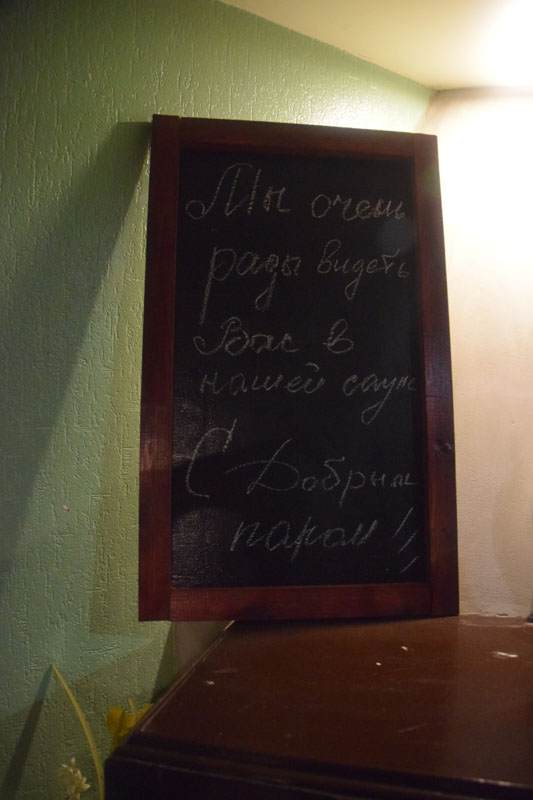 Мы очень
рады видеть
Вас в
нашей саун
С Добрым
паром!!